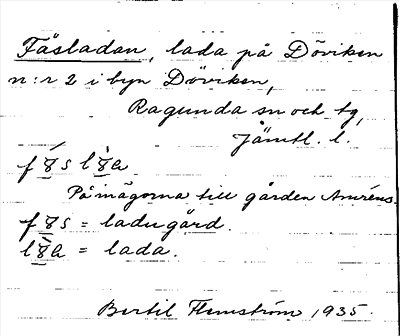 Fäsladan, lada på Döviken
n:r 2 i byn Döviken,
Ragunda sn och tg,
Jämtl. l.
På inägorna till gården Amréns.
= ladugård.
= lada.
Bertil Flemström 1935.